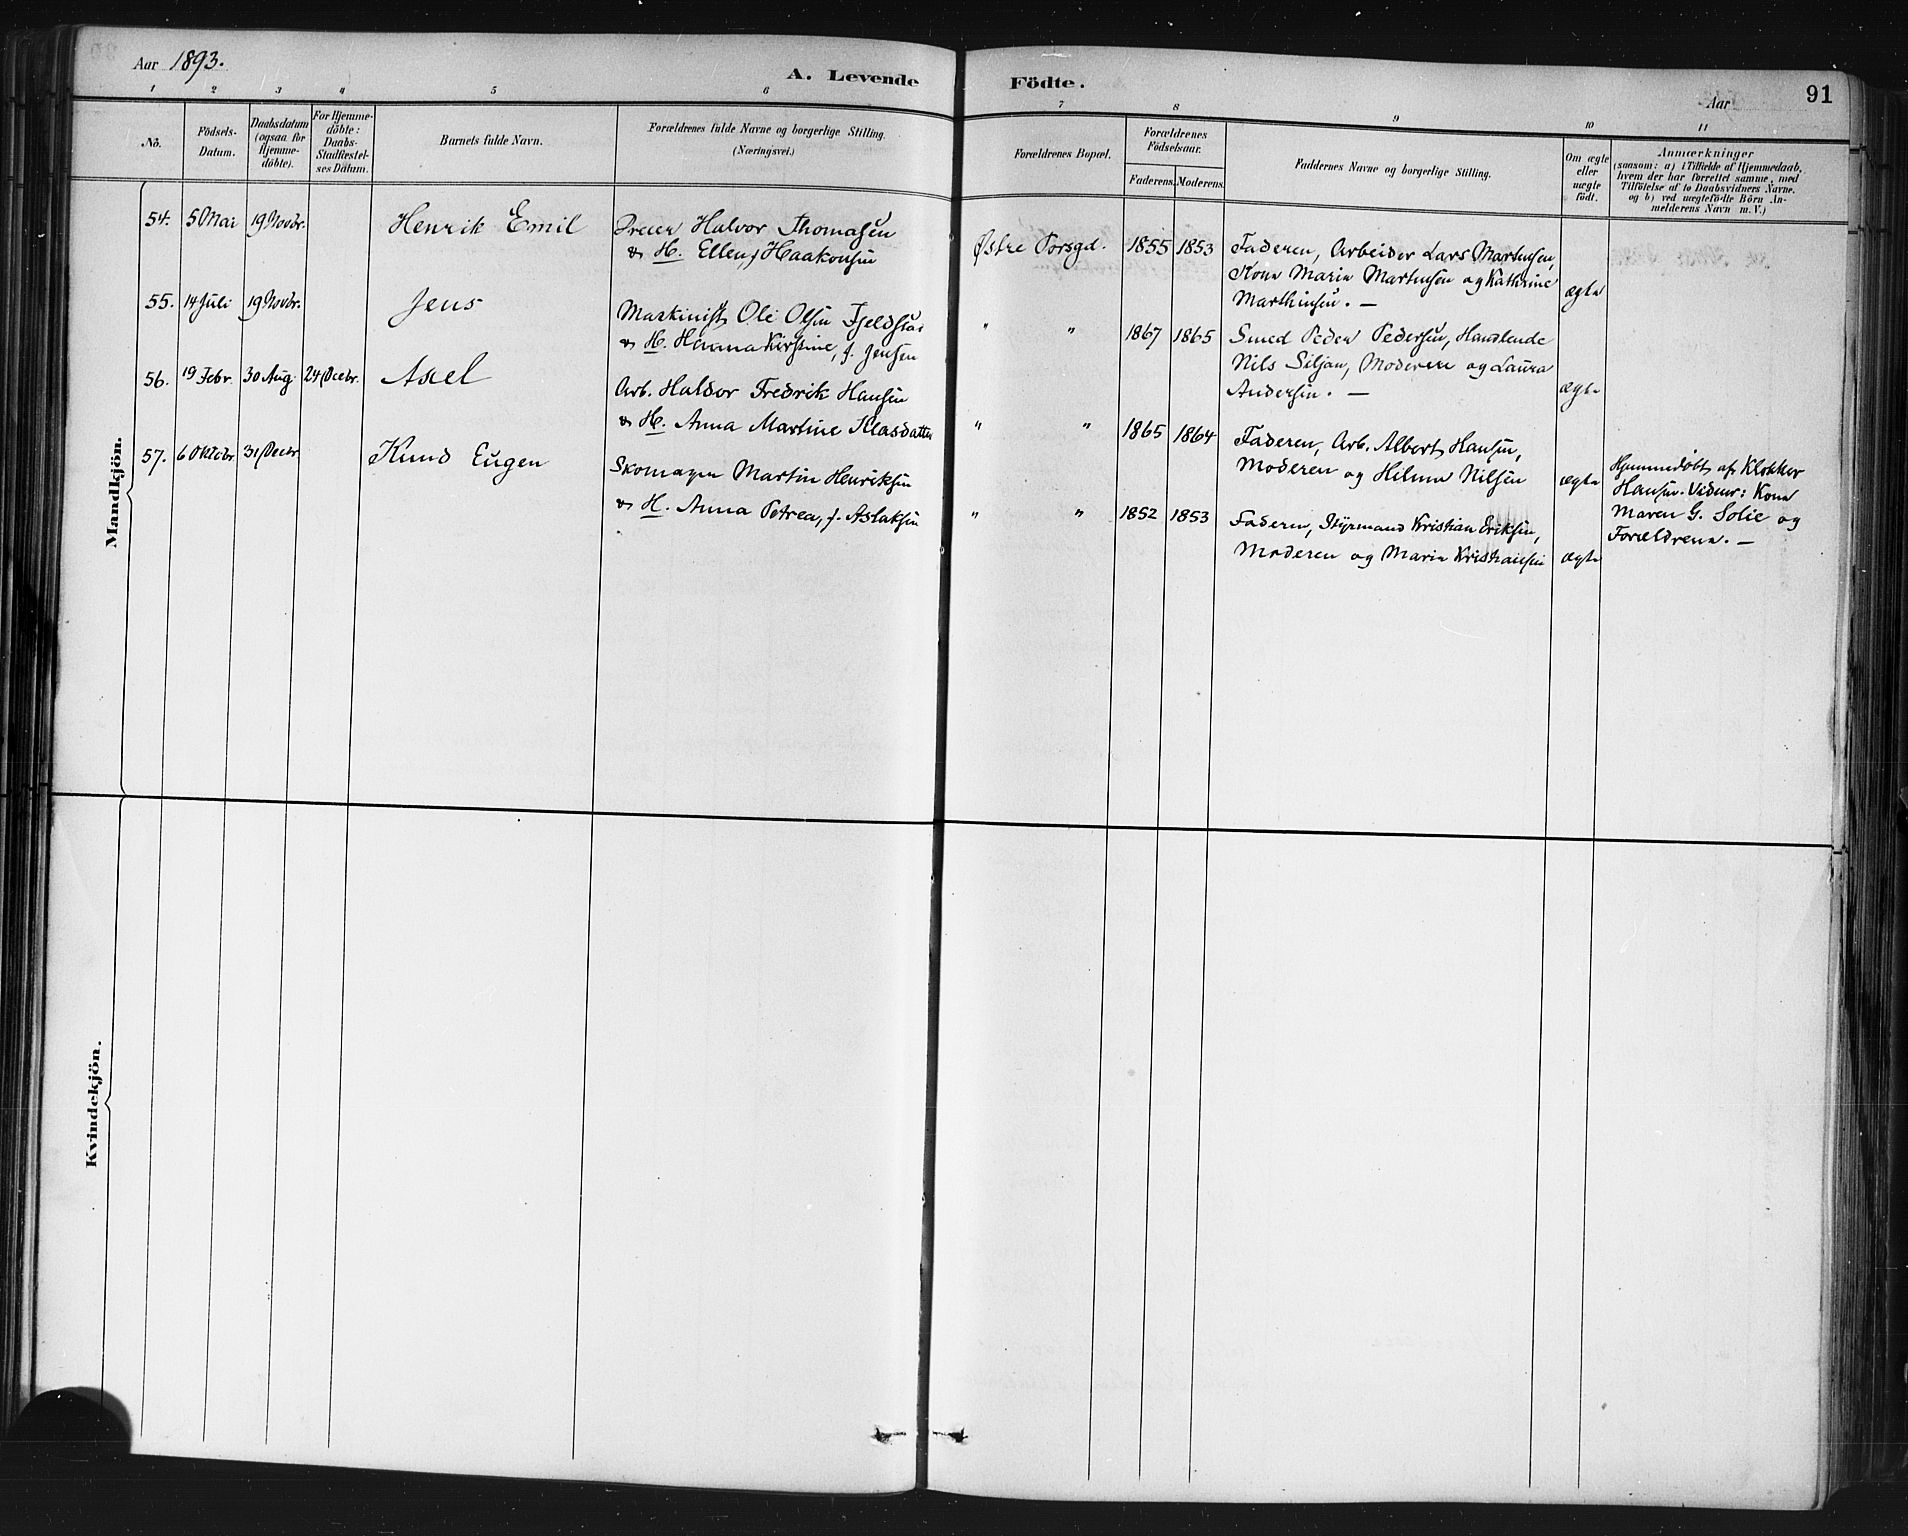 Aar 1893.
A. Levende
Födte.
Aar
91
1 2 3 4 5 6 7 8 9 10 11
No.
Födsels-
Datum.
Daabsdatum
(ogsaa for
Hjemme-
döbte).
For Hjemme-
döbte:
Daabs-
Stadfæstel-
ses Datum.
Barnets fulde Navn.
Forældrenes fulde Navne og borgerlige Stilling.
(Næringsvei.)
Forældrenes Bopæl.
Forældrenes
Födselsaar.
Faderens. Moderens.
Faddernes Navne og borgerlige Stilling.
Om ægte
eller
uægte
födt.
Anmærkninger
(saasom: a) i Tilfælde af Hjemmedaab,
hvem der har forrettet samme, med
Tilföielse af to Daabsvidners Navne.
og b) ved uægtefödte Börn An-
melderens Navn m. V.)
Mandkjön.
54. 5 Mai 19 Novbr. Henrik Emil
Dreier Halvor Thomasen
& H. Ellen, f. Haakonsen
Østre Porsgd. 1855 1853
Faderen, Arbeider Lars Martinsen,
Kona Maria Martinsen og Kathrine
Marthinsen. — ægte
55. 14 Juli 19 Novbr. Jens
Maskinist Ole Olsen
& H. Hanna Kirstine, f. Jensen
" " 1867 1865
Smed Peder Pedersen, Handlende
Nils Siljan, Moderen og Laura
Andersen. — ægte
56. 19 Febr. 30 Aug. 24 Decbr. Axel
Arb. Haldor Fredrik Hansen
& H. Anna Martine Klasdatter
" " 1865 1864
Faderen, Arb. Albert Hansen,
Moderen og Hilma Nilsen ægte
Hjemmedøbt af Klokker
Hansen. Vidner: Kona
Maren G. Solie og
Forældrene. —
57. 6 Oktobr. 31 Decbr. Knud Eugen
Skomager Martin Henriksen
& H. Anna Petrea, f. Aslaksen
" " 1852 1853
Faderen, Styrmand Kristian Eriksen,
Moderen og Maria Kristiansen ægte
Kvindekjön.